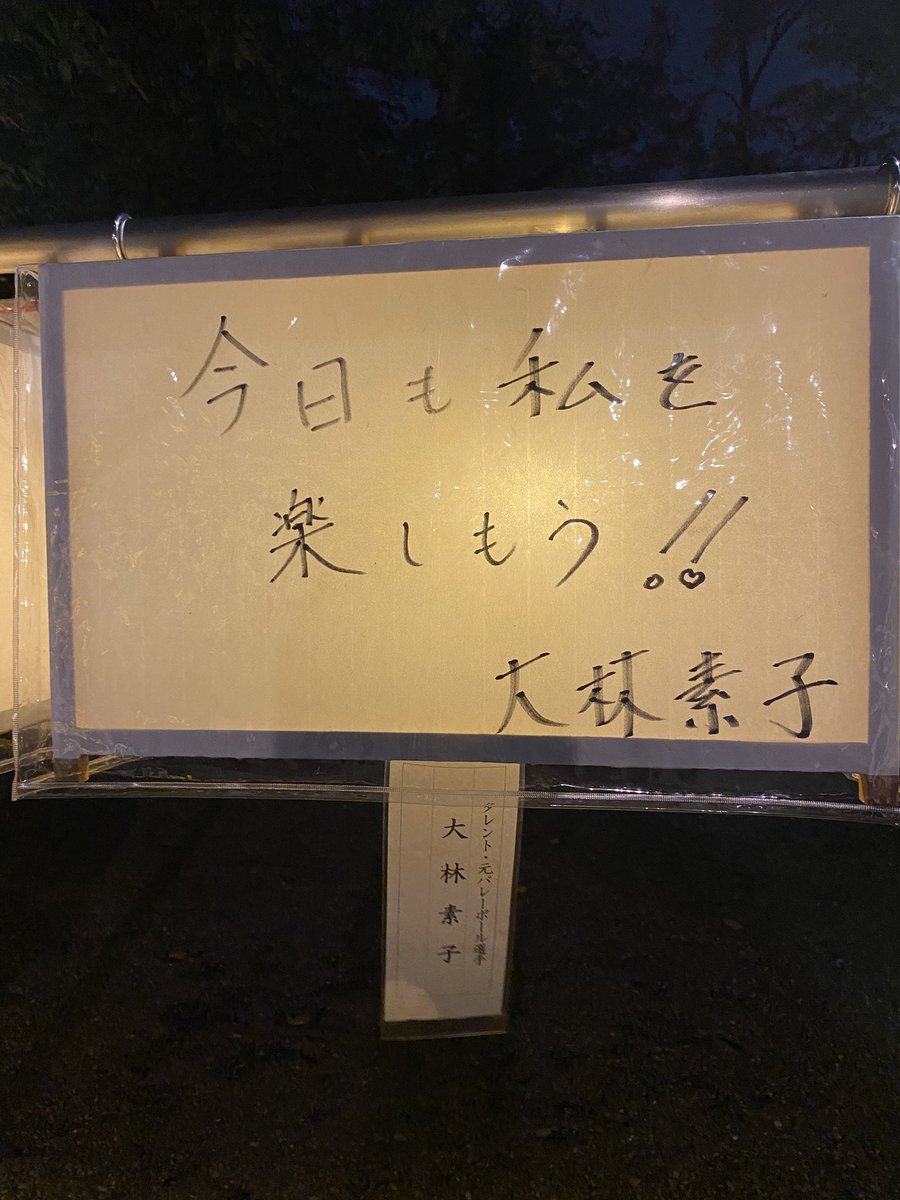 今日も私を
楽しもう!!
大林素子
タレント・元バレーボール選手
大林素子